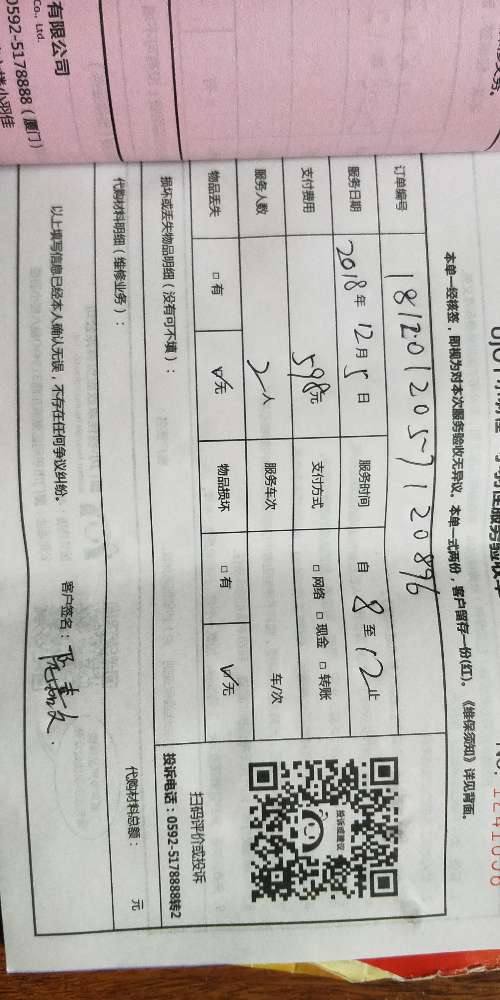 有限公司
Co., Ltd.
0592-5178888（厦门）
本单一经核签，即视为对本次服务验收无异议。本单一式两份，客户留存一份(红)。《维保须知》详见背面。
订单编号 181201205711 20896
服务日期 2018年12月5日 服务时间 自 8 至 12 止
支付费用 598元 支付方式 □网络 □现金 □转账
服务人数 2人 服务车次 车/次
物品丢失 □有 ☑无 物品损坏 □有 ☑无
损坏或丢失物品明细（没有可不填）：
代购材料明细（维修业务）： 代购材料总额： 元
以上填写信息已经本人确认无误，不存在任何争议纠纷。 客户签名：
投诉或建议
扫码评价或投诉
投诉电话：0592-5178888转2